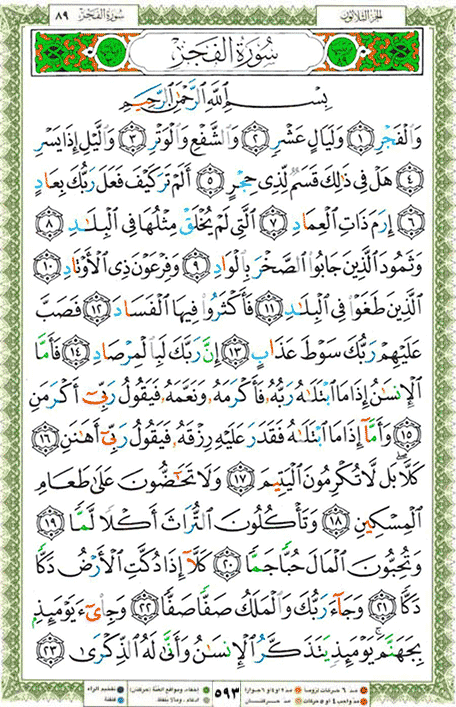 سُورَةُ الفَجْرِ ٨٩ الجزء الثلاثون
سُورَةُ الفَجْرِ
بِسْمِ ٱللَّهِ ٱلرَّحْمَٰنِ ٱلرَّحِيمِ
وَٱلْفَجْرِ ۝١ وَلَيَالٍ عَشْرٍ ۝٢ وَٱلشَّفْعِ وَٱلْوَتْرِ ۝٣ وَٱلَّيْلِ إِذَا يَسْرِ
۝٤ هَلْ فِى ذَٰلِكَ قَسَمٌ لِّذِى حِجْرٍ ۝٥ أَلَمْ تَرَ كَيْفَ فَعَلَ رَبُّكَ بِعَادٍ
۝٦ إِرَمَ ذَاتِ ٱلْعِمَادِ ۝٧ ٱلَّتِى لَمْ يُخْلَقْ مِثْلُهَا فِى ٱلْبِلَٰدِ ۝٨
وَثَمُودَ ٱلَّذِينَ جَابُوا۟ ٱلصَّخْرَ بِٱلْوَادِ ۝٩ وَفِرْعَوْنَ ذِى ٱلْأَوْنَادِ ۝١٠
ٱلَّذِينَ طَغَوْا۟ فِى ٱلْبِلَٰدِ ۝١١ فَأَكْثَرُوا۟ فِيهَا ٱلْفَسَادَ ۝١٢ فَصَبَّ
عَلَيْهِمْ رَبُّكَ سَوْطَ عَذَابٍ ۝١٣ إِنَّ رَبَّكَ لَبِٱلْمِرْصَادِ ۝١٤ فَأَمَّا
ٱلْإِنسَٰنُ إِذَا مَا ٱبْتَلَىٰهُ رَبُّهُۥ فَأَكْرَمَهُۥ وَنَعَّمَهُۥ فَيَقُولُ رَبِّىٓ أَكْرَمَنِ
۝١٥ وَأَمَّآ إِذَا مَا ٱبْتَلَىٰهُ فَقَدَرَ عَلَيْهِ رِزْقَهُۥ فَيَقُولُ رَبِّىٓ أَهَٰنَنِ ۝١٦
كَلَّا ۖ بَل لَّا تُكْرِمُونَ ٱلْيَتِيمَ ۝١٧ وَلَا تَحَٰٓضُّونَ عَلَىٰ طَعَامِ
ٱلْمِسْكِينِ ۝١٨ وَتَأْكُلُونَ ٱلتُّرَاثَ أَكْلًا لَّمًّا ۝١٩
وَتُحِبُّونَ ٱلْمَالَ حُبًّا جَمًّا ۝٢٠ كَلَّآ إِذَا دُكَّتِ ٱلْأَرْضُ دَكًّا
دَكًّا ۝٢١ وَجَآءَ رَبُّكَ وَٱلْمَلَكُ صَفًّا صَفًّا ۝٢٢ وَجِا۟ىٓءَ يَوْمَئِذٍۭ
بِجَهَنَّمَ ۚ يَوْمَئِذٍ يَتَذَكَّرُ ٱلْإِنسَٰنُ وَأَنَّىٰ لَهُ ٱلذِّكْرَىٰ ۝٢٣
٥٩٣